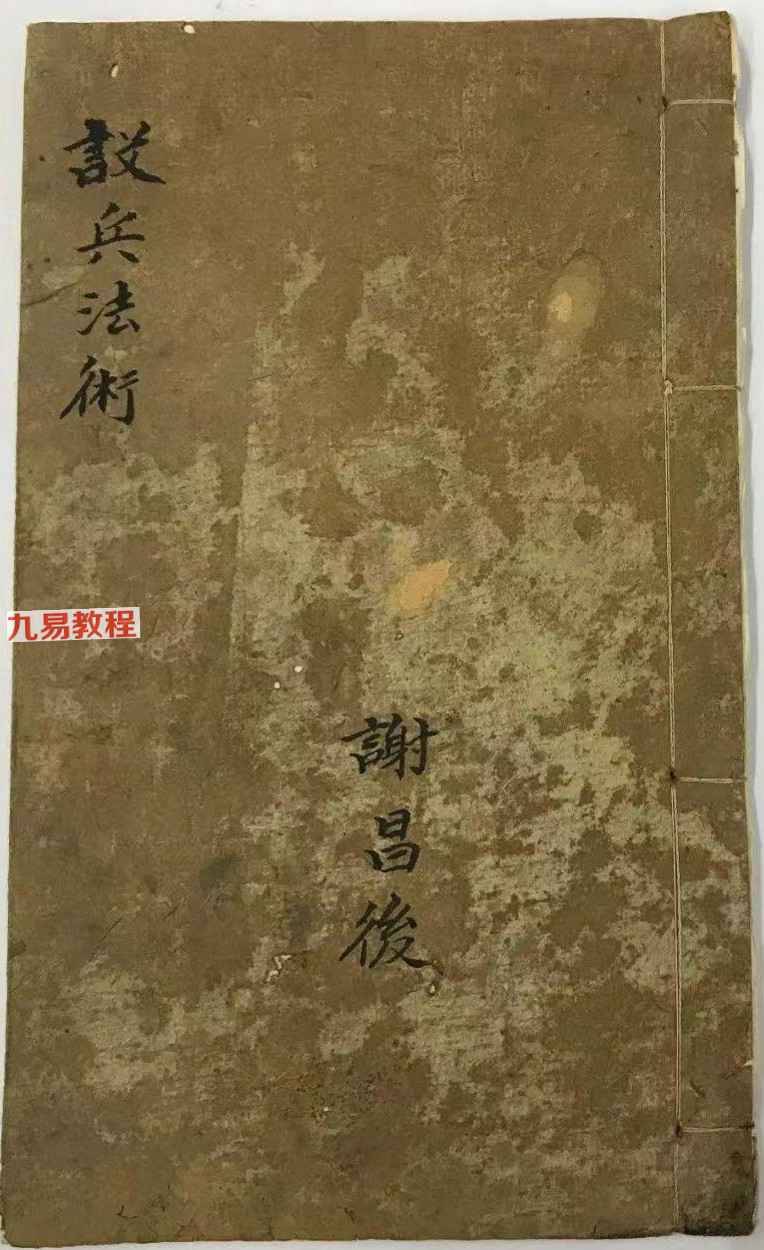 設兵法術
謝昌後
九易教程